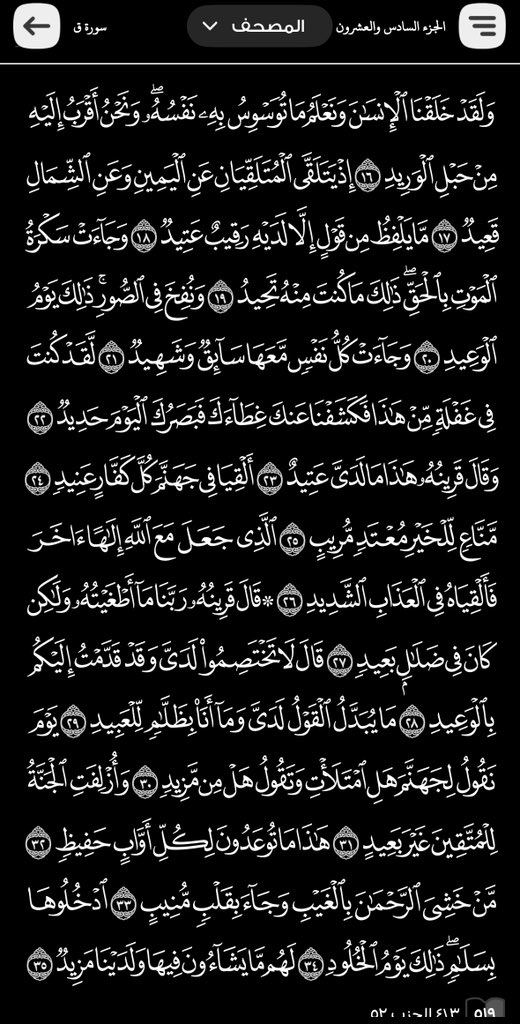 سورة ق المصحف الجزء السادس والعشرون
وَلَقَدْ خَلَقْنَا ٱلْإِنسَٰنَ وَنَعْلَمُ مَا تُوَسْوِسُ بِهِۦ نَفْسُهُۥۖ وَنَحْنُ أَقْرَبُ إِلَيْهِ
مِنْ حَبْلِ ٱلْوَرِيدِ ١٦ إِذْ يَتَلَقَّى ٱلْمُتَلَقِّيَانِ عَنِ ٱلْيَمِينِ وَعَنِ ٱلشِّمَالِ
قَعِيدٌ ١٧ مَّا يَلْفِظُ مِن قَوْلٍ إِلَّا لَدَيْهِ رَقِيبٌ عَتِيدٌ ١٨ وَجَآءَتْ سَكْرَةُ
ٱلْمَوْتِ بِٱلْحَقِّۖ ذَٰلِكَ مَا كُنتَ مِنْهُ تَحِيدُ ١٩ وَنُفِخَ فِى ٱلصُّورِۚ ذَٰلِكَ يَوْمُ
ٱلْوَعِيدِ ٢٠ وَجَآءَتْ كُلُّ نَفْسٍ مَّعَهَا سَآئِقٌ وَشَهِيدٌ ٢١ لَّقَدْ كُنتَ
فِى غَفْلَةٍ مِّنْ هَٰذَا فَكَشَفْنَا عَنكَ غِطَآءَكَ فَبَصَرُكَ ٱلْيَوْمَ حَدِيدٌ ٢٢
وَقَالَ قَرِينُهُۥ هَٰذَا مَا لَدَىَّ عَتِيدٌ ٢٣ أَلْقِيَا فِى جَهَنَّمَ كُلَّ كَفَّارٍ عَنِيدٍ ٢٤
مَّنَّاعٍ لِّلْخَيْرِ مُعْتَدٍ مُّرِيبٍ ٢٥ ٱلَّذِى جَعَلَ مَعَ ٱللَّهِ إِلَٰهًا ءَاخَرَ
فَأَلْقِيَاهُ فِى ٱلْعَذَابِ ٱلشَّدِيدِ ٢٦ * قَالَ قَرِينُهُۥ رَبَّنَا مَآ أَطْغَيْتُهُۥ وَلَٰكِن
كَانَ فِى ضَلَٰلٍۭ بَعِيدٍ ٢٧ قَالَ لَا تَخْتَصِمُوا۟ لَدَىَّ وَقَدْ قَدَّمْتُ إِلَيْكُم
بِٱلْوَعِيدِ ٢٨ مَا يُبَدَّلُ ٱلْقَوْلُ لَدَىَّ وَمَآ أَنَا۠ بِظَلَّٰمٍ لِّلْعَبِيدِ ٢٩ يَوْمَ
نَقُولُ لِجَهَنَّمَ هَلِ ٱمْتَلَأْتِ وَتَقُولُ هَلْ مِن مَّزِيدٍ ٣٠ وَأُزْلِفَتِ ٱلْجَنَّةُ
لِلْمُتَّقِينَ غَيْرَ بَعِيدٍ ٣١ هَٰذَا مَا تُوعَدُونَ لِكُلِّ أَوَّابٍ حَفِيظٍ ٣٢
مَّنْ خَشِىَ ٱلرَّحْمَٰنَ بِٱلْغَيْبِ وَجَآءَ بِقَلْبٍ مُّنِيبٍ ٣٣ ٱدْخُلُوهَا
بِسَلَٰمٍۖ ذَٰلِكَ يَوْمُ ٱلْخُلُودِ ٣٤ لَهُم مَّا يَشَآءُونَ فِيهَا وَلَدَيْنَا مَزِيدٌ ٣٥
٥١٩ ٤١٣ الحزب ٥٢